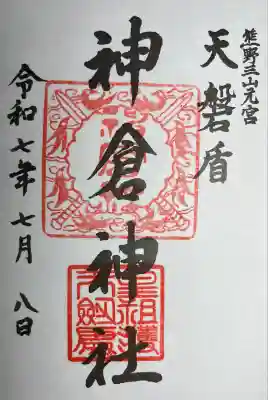 熊野三山元宮
天磐盾
神倉神社
令和七年七月八日